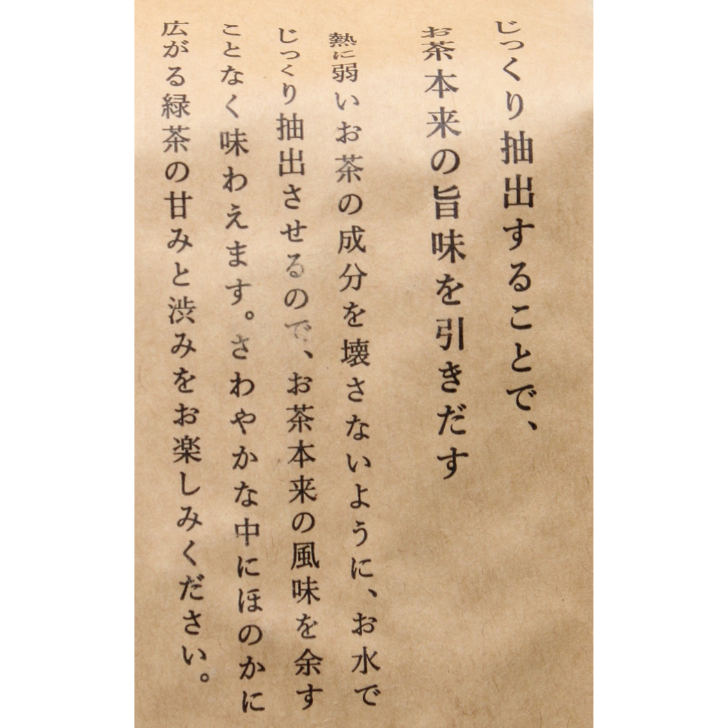 じっくり抽出することで、
お茶本来の旨味を引きだす
熱に弱いお茶の成分を壊さないように、お水で
じっくり抽出させるので、お茶本来の風味を余す
ことなく味わえます。さわやかな中にほのかに
広がる緑茶の甘みと渋みをお楽しみください。